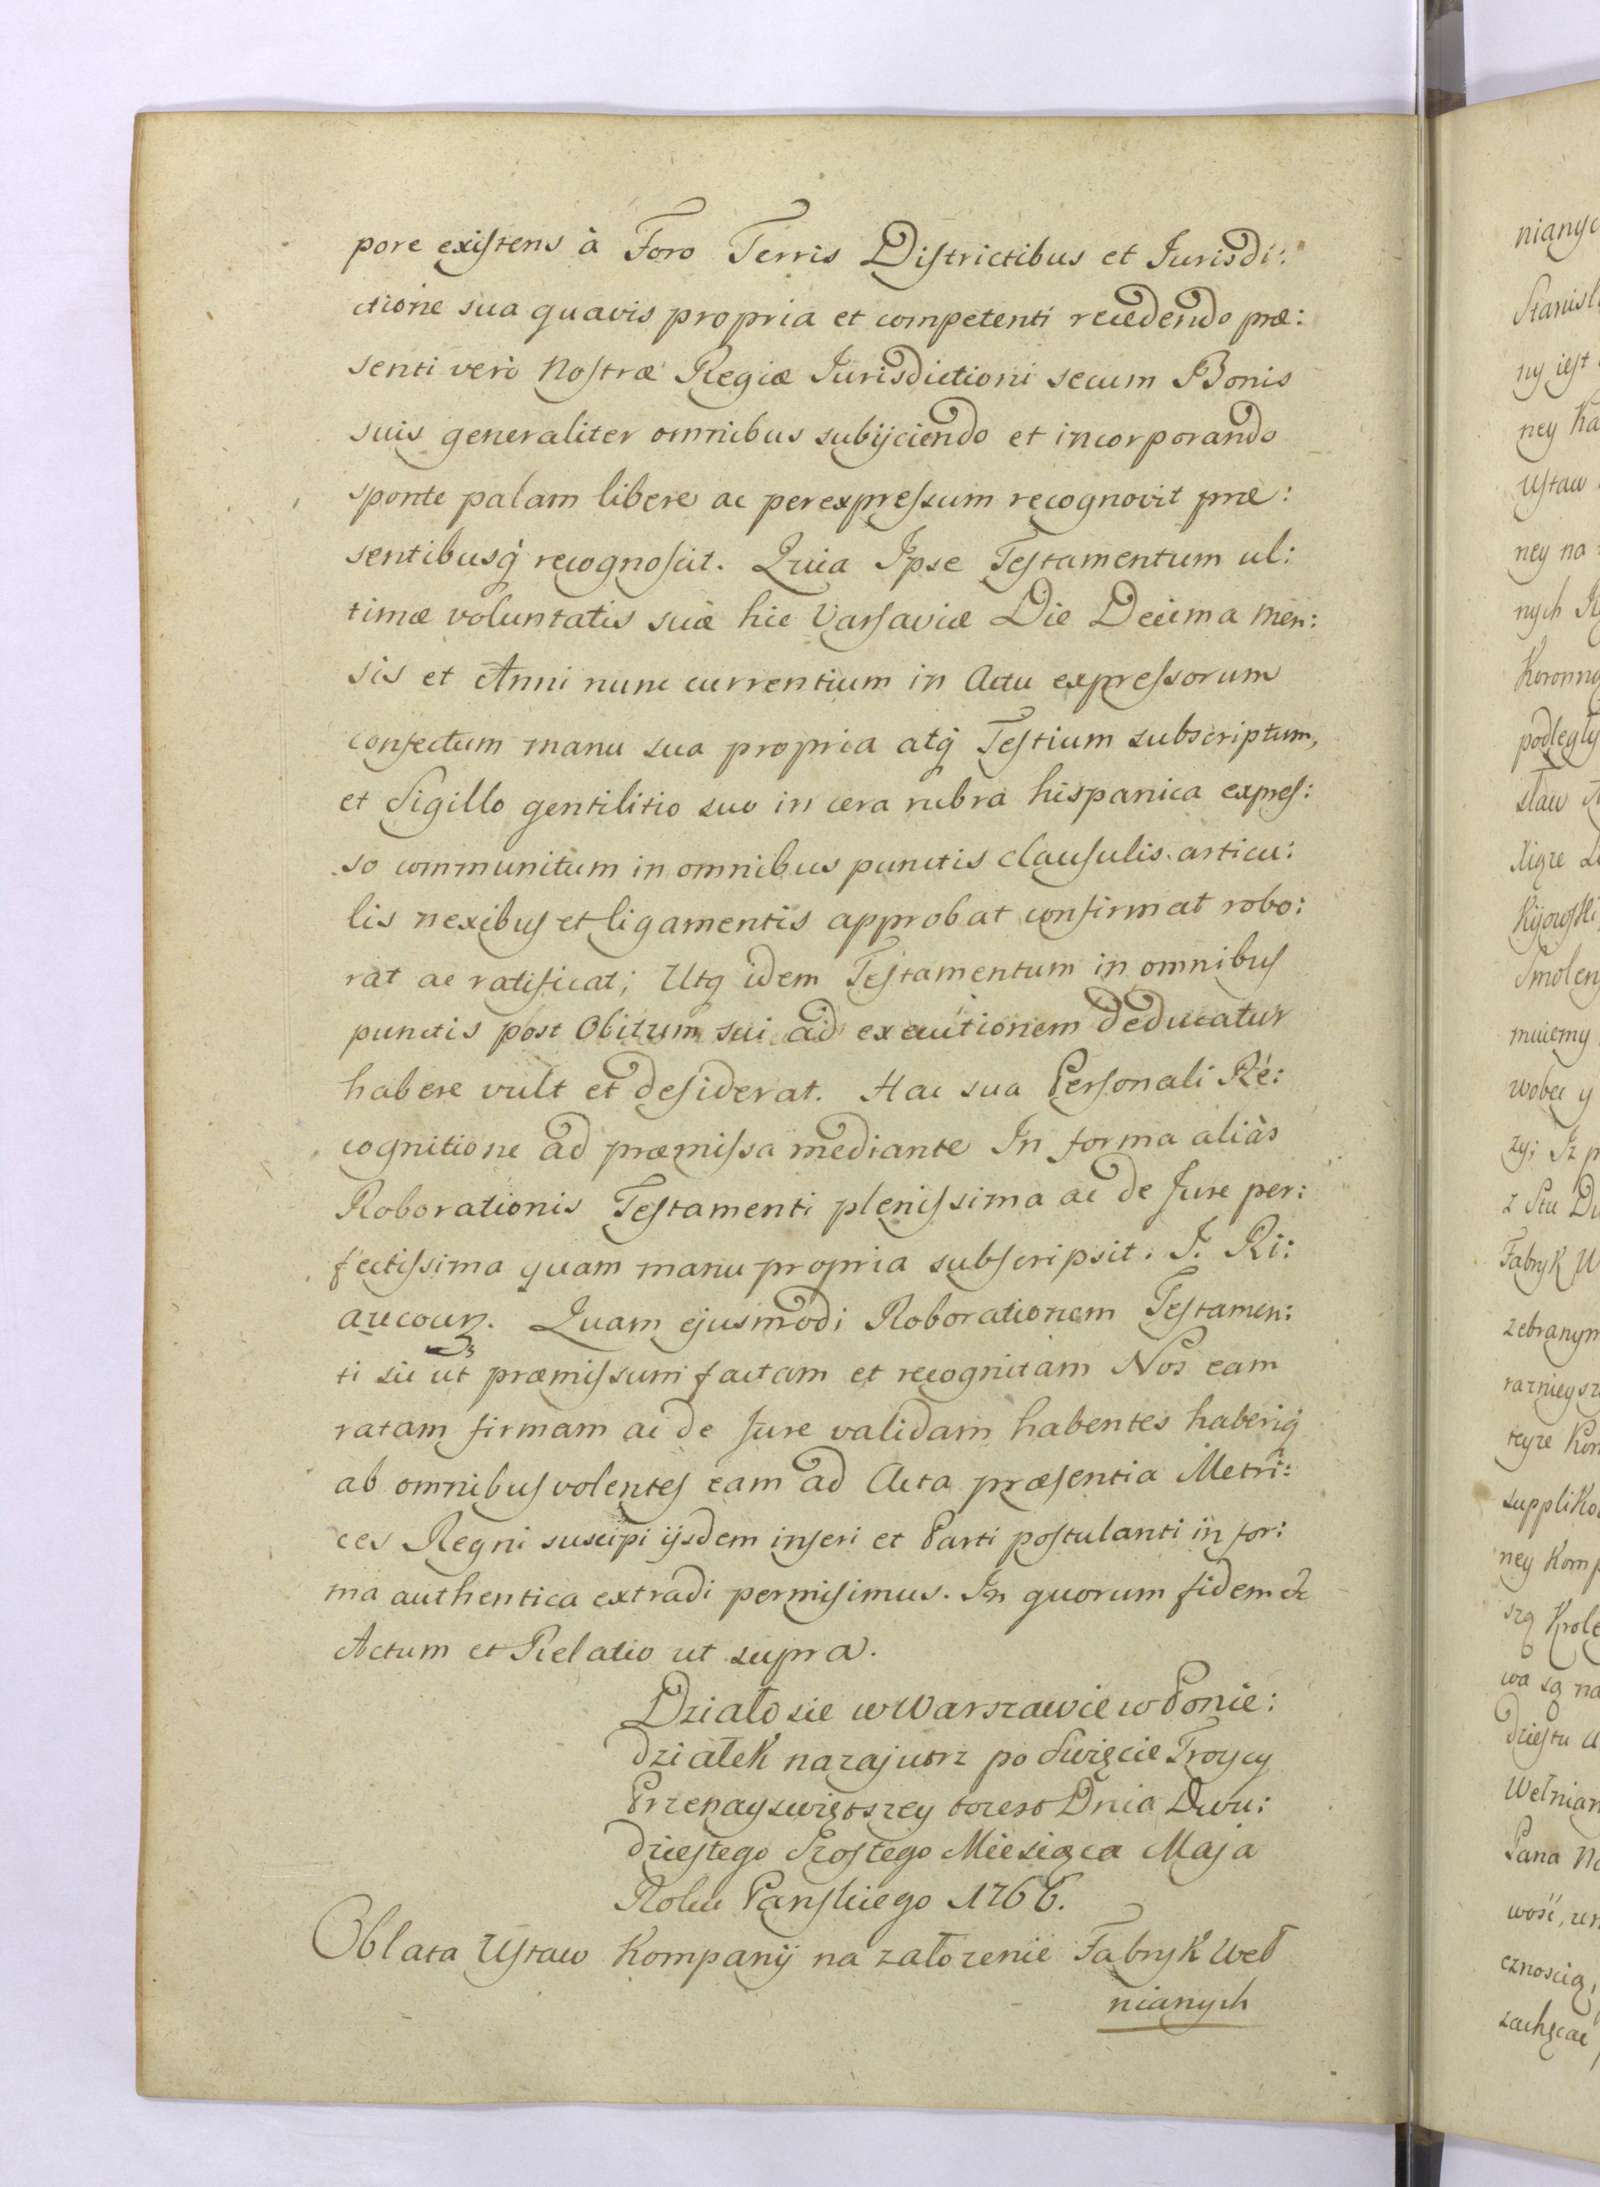 pore existens à Foro Terris Districtibus et Jurisdi:
ctione sua quavis propria et competenti recedendo præ:
senti verò Nostræ Regiæ Jurisdictioni secum Bonis
suis generaliter omnibus subijciendo et incorporando
sponte palam libere ac per expressum recognovit præ:
sentibusq recognoscit. Quia Ipse Testamentum ul:
timæ voluntatis suæ hic Varsaviæ Die Decima Men:
sis et Anni nunc currentium in Actu expressorum
confectum manu sua propria atq Testium subscriptum,
et Sigillo gentilitio suo in cera rubra hispanica expres:
so communitum in omnibus punctis clausulis articu:
lis nexibus et ligamentis approbat confirmat robo:
rat ac ratificat; Utq idem Testamentum in omnibus
punctis post Obitum sui ad executionem deducatur
habere vult et desiderat. Hac sua Personali Re:
cognitione ad præmissa mediante In forma aliàs
Roborationis Testamenti plenissima ac de Jure per:
fectissima quam manu propria subscripsit. J. Ri:
aucour. Quam ejusmodi Roborationem Testamen:
ti sic ut præmissum factam et recognitam Nos eam
ratam firmam ac de Jure validam habentes haberiq
ab omnibus volentes eam ad Acta præsentia Metri:
ces Regni suscipi ijsdem inseri et Parti postulanti in for:
ma authentica extradi permisimus. In quorum fidem &
Actum et Relatio ut supra.
Działo sie w Warszawie w Ponie:
działek nazajutrz po Swięcie Troycy
Przenayswiętszey to iest Dnia Dwu:
dziestego Szostego Miesiąca Maja
Roku Panskiego 1766.
Oblata Ustaw Kompanij na założenie Fabryk Weł
nianych
Stanisł
ny iest
ney Ka
Ustaw
ney na
nych
Koronn
podległy
sław
Kijowski
Smolen
wobec y
Fabryk W
zebranym
suppliko
ney Komp
wa są na
Wełnian
Pana
cznoscią,
zachęcac